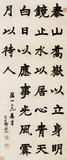 泰山喬嶽以立身明
鏡止水以居心青天
白日以應事光風霽
月以待人